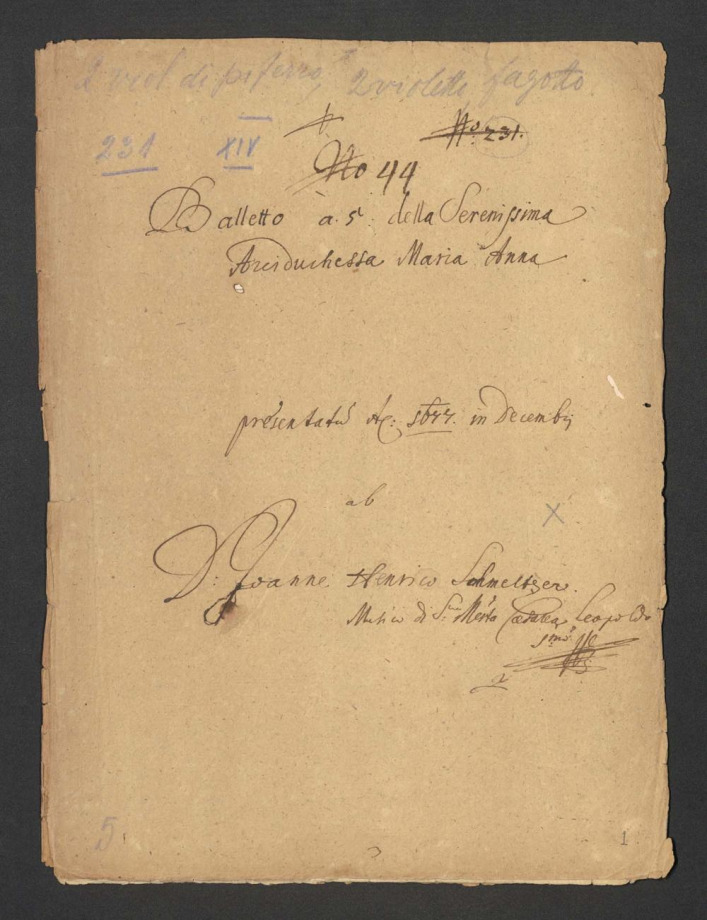 2 viol. di pifferro, 2 violette fagotto.
No. 231.
231 XIV
No 44
Balletto à. 5. della Serenissima
Arciduchessa Maria Anna
præsentatũ Aō: 1677. in Decembrj
ab
X
D: Joanne Henrico Schmeltzer.
Musico di S. Mtà Cesarea Leopoldo
1mo
5
1